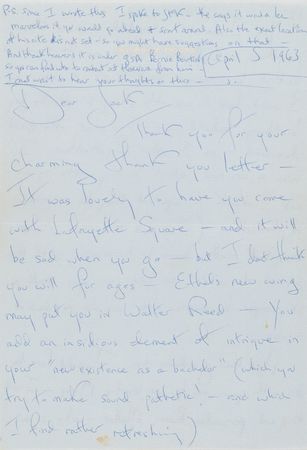 P.S. Since I wrote this I spoke to JFK. He says it would be
marvelous if you would go ahead & scout around. Also the exact location
of his site is not set - so you might have suggestions on that -
And that however it is under GSA Bernie Boutin
so you can find who to contact at
I cant wait to hear your thoughts on this -
April 3 1963
Dear Jack
Thank you for your
charming thank you letter -
It was lovely to have you come
with Lafayette Square - and it will
be sad when you go - but I don't think
you will for ages - Ethel's new wing
may put you in Walter Reed - You
add an insidious element of intrigue in
your "new existence as a bachelor" (which you
try to make sound pathetic! - and which
I find rather refreshing)